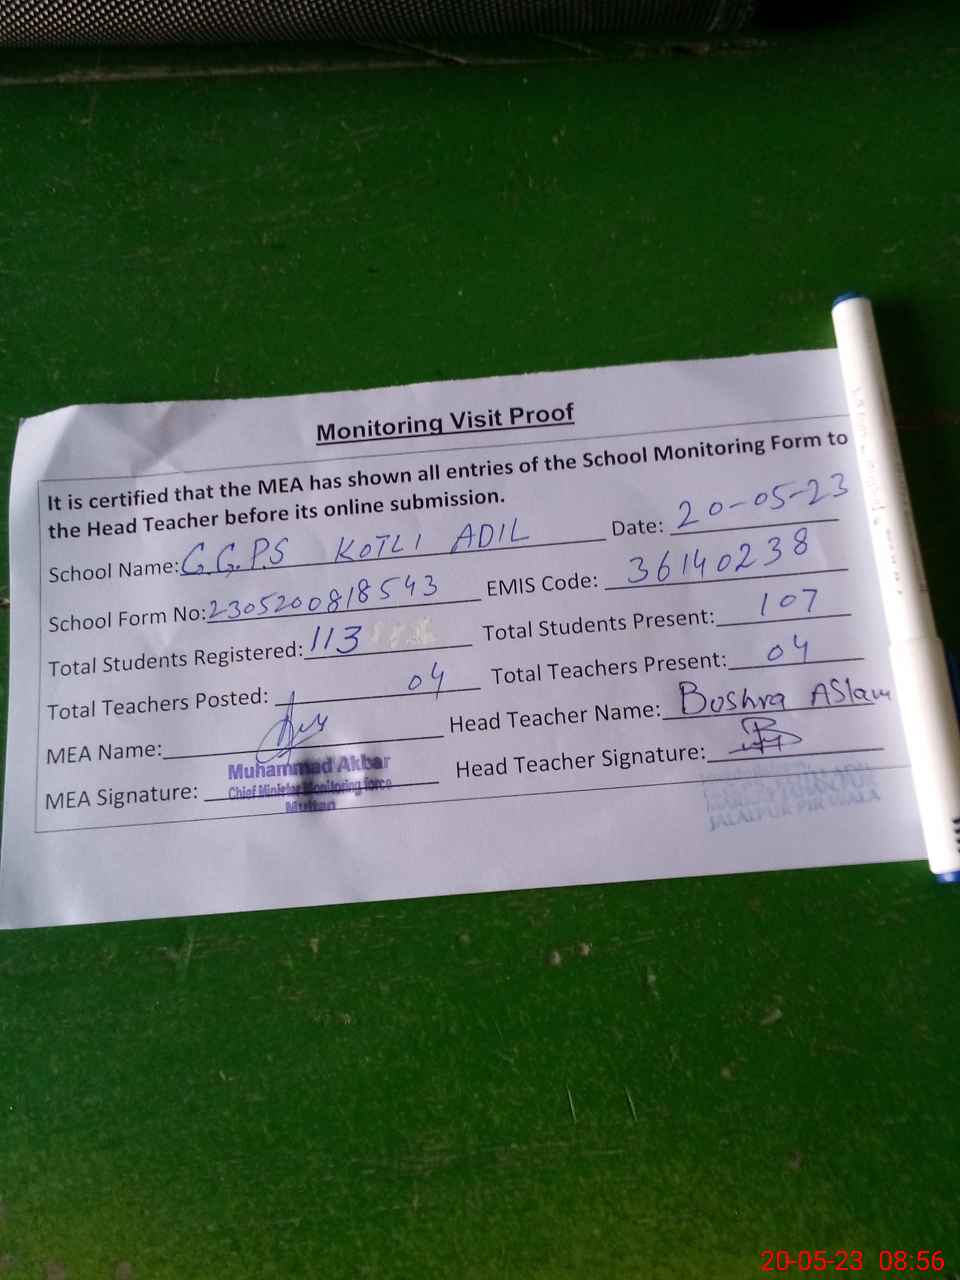 Monitoring Visit Proof
It is certified that the MEA has shown all entries of the School Monitoring Form to
the Head Teacher before its online submission.
School Name: G.G.P.S KOTLI ADIL Date: 20-05-23
School Form No: 2305200818543 EMIS Code: 36140238
Total Students Registered: 113 Total Students Present: 107
Total Teachers Posted: 04 Total Teachers Present: 04
MEA Name: Head Teacher Name: Bushra ASlam
MEA Signature: Head Teacher Signature:
Muhammad Akbar
Chief Minister Monitoring force
Multan
JALALPUR PIR WALA
20-05-23 08:56